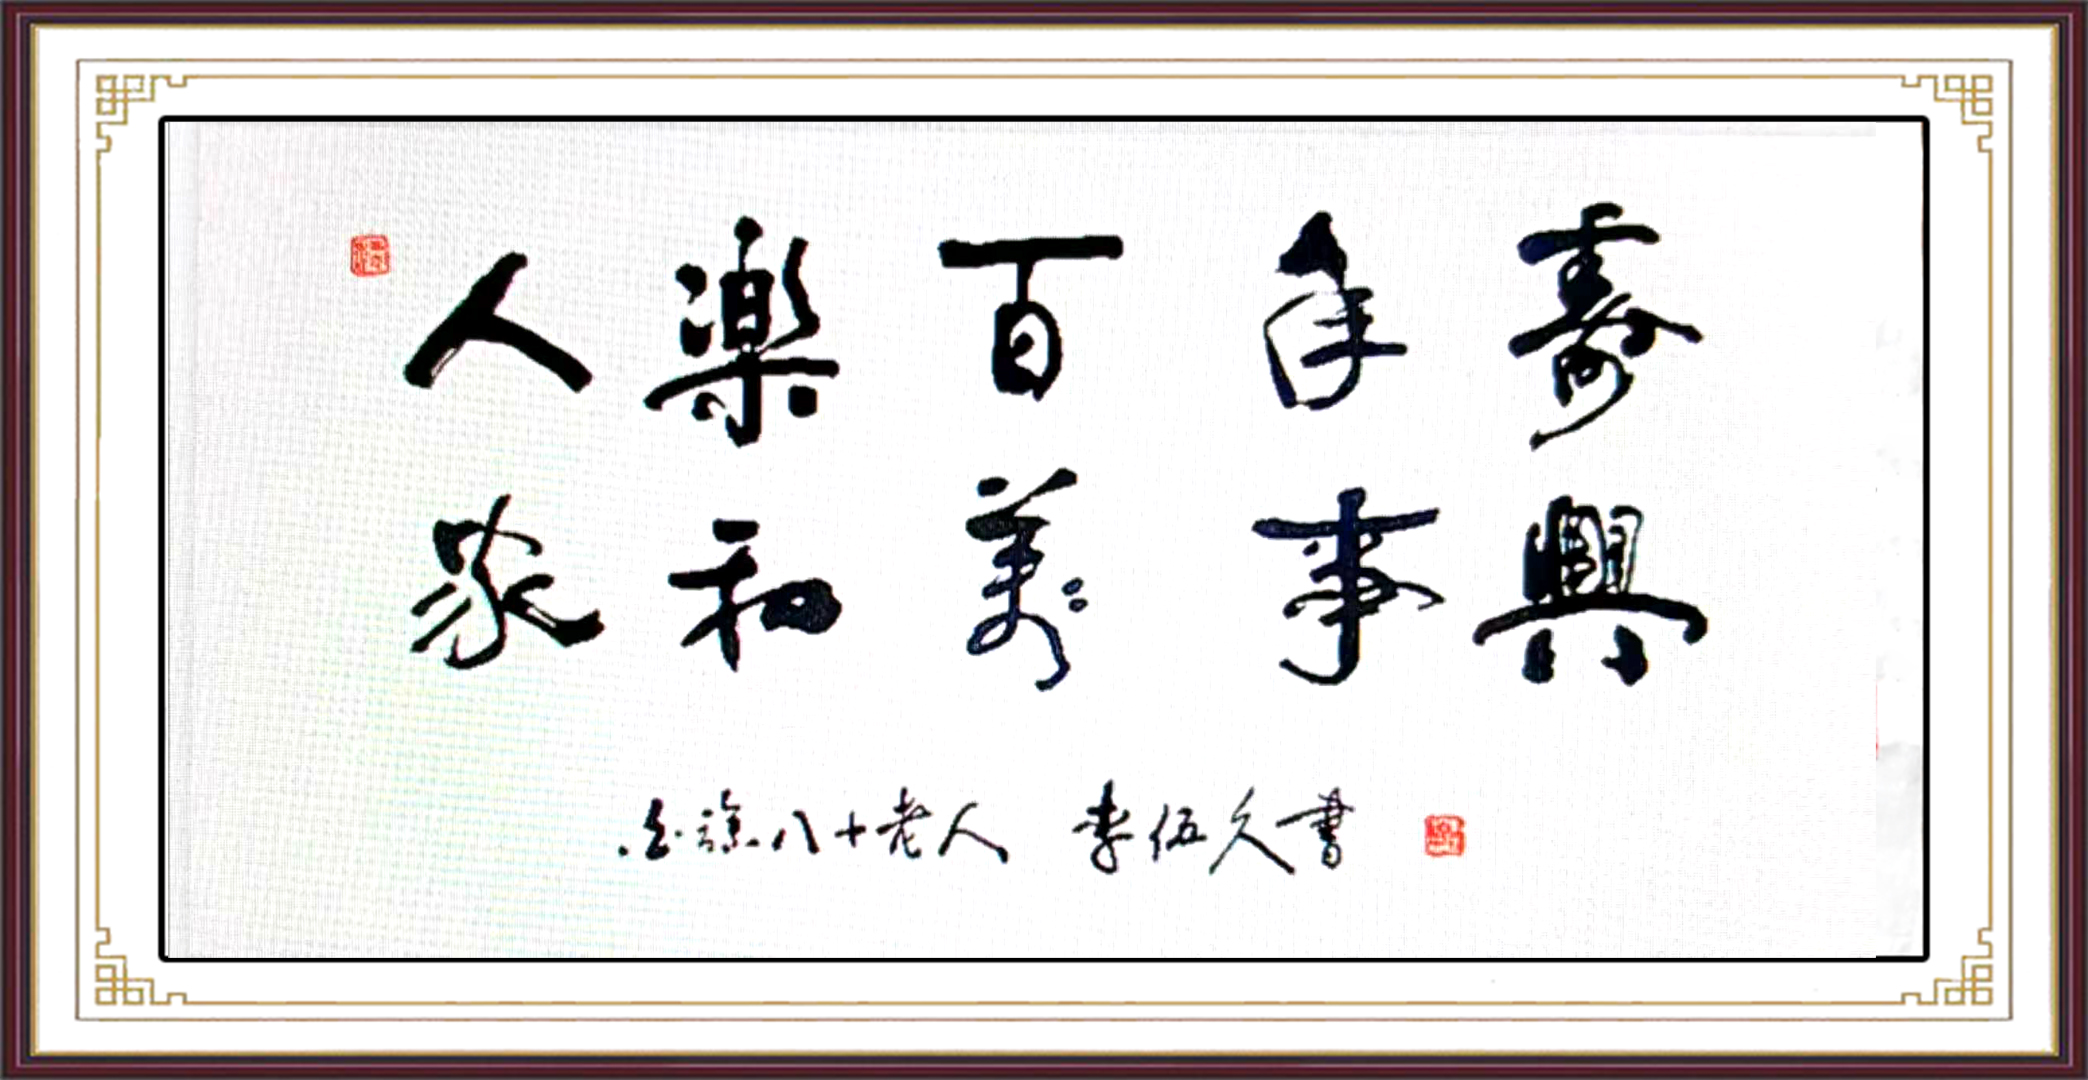 人樂百年壽
家和萬事興
八十老人 李伍久書